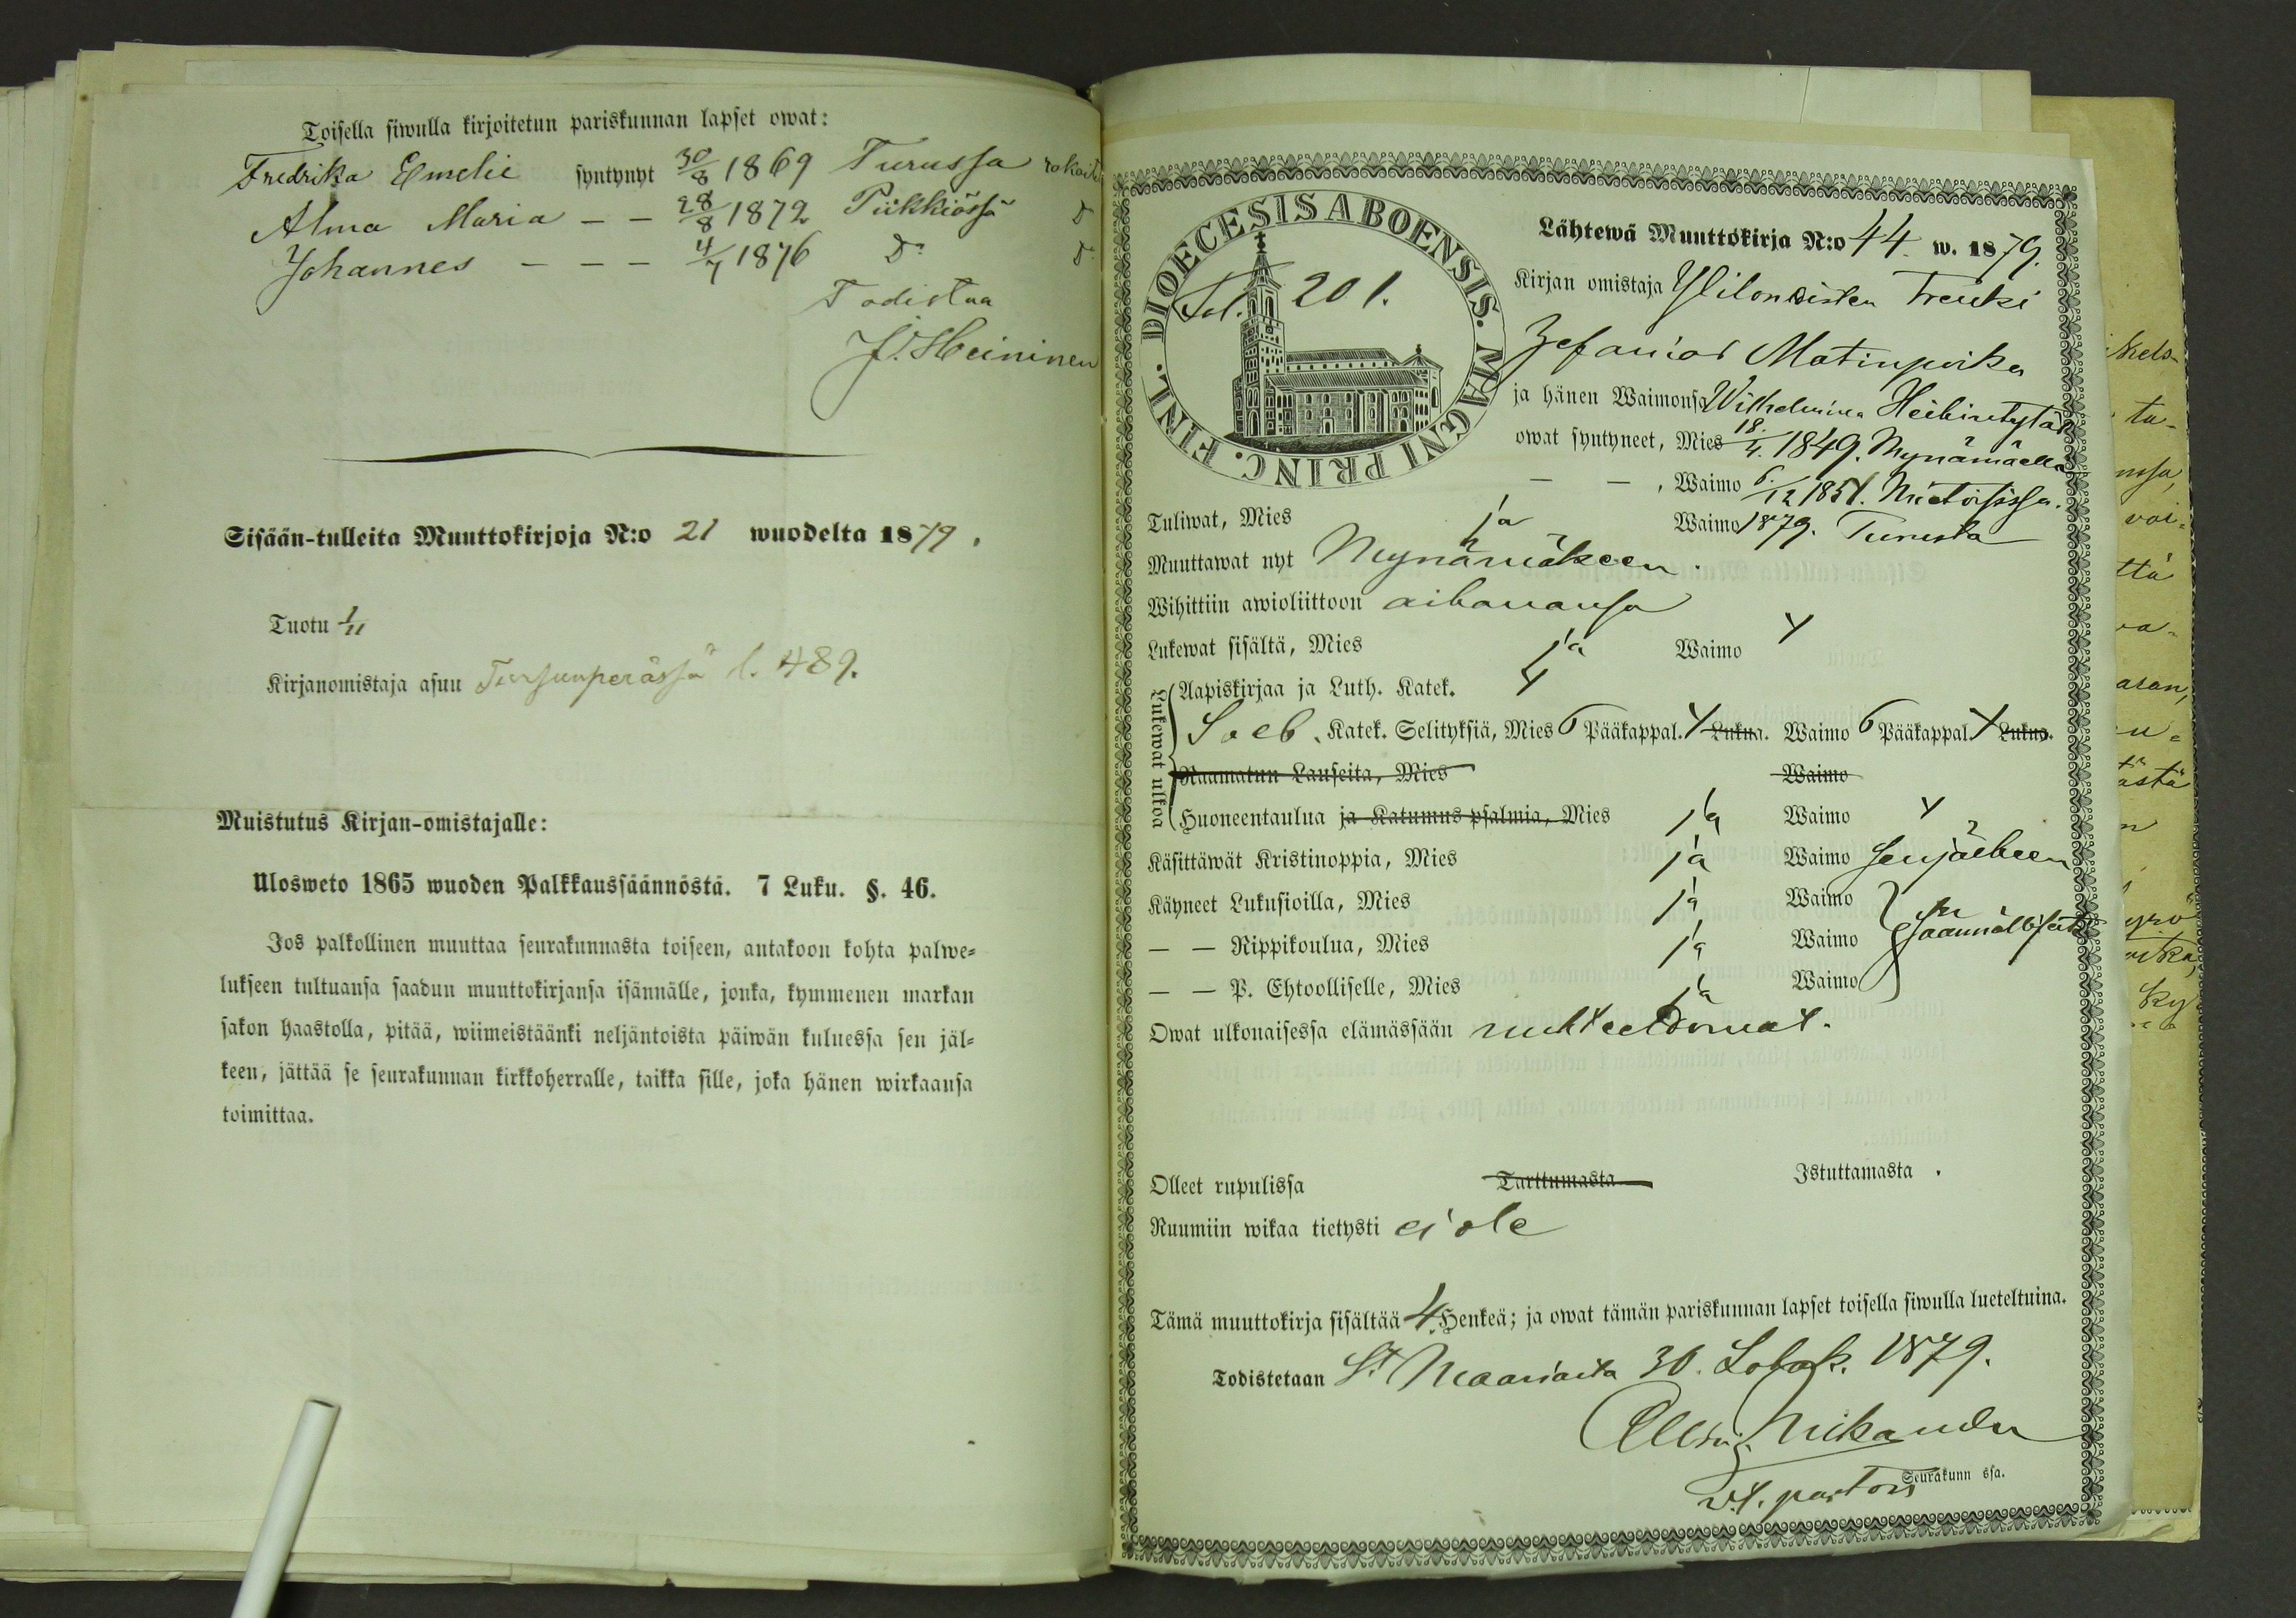 Toisella siwulla kirjoitetun pariskunnan lapset owat:
Fredrika Emelie syntynyt 30/8 1869 Turussa
Alma Maria — — 28/8 1872 Piikkiössä D:
Johannes — — — 4/7 1876 D: D:
Todistaa
J. Heininen
Sisään-tulleita Muuttokirjoja N:o 21 wuodelta 1879.
Tuotu 1/11
Kirjanomistaja asuu Tursunperässä l. 489.
Muistutus Kirjan-omistajalle:
Ulosweto 1865 wuoden Palkkaussäännöstä. 7 Luku. §. 46.
Jos palkollinen muuttaa seurakunnasta toiseen, antakoon kohta palwe-
lukseen tultuansa saadun muuttokirjansa isännälle, jonka, kymmenen markan
sakon haastolla, pitää, wiimeistäänki neljäntoista päiwän kuluessa sen jäl-
keen, jättää se seurakunnan kirkkoherralle, taikka sille, joka hänen wirkaansa
toimittaa.
DIOECESIS ABOENSIS. MAGNI PRINC. FINL.
Fol. 201.
Lähtewä Muuttokirja N:o 44. w. 1879.
Kirjan omistaja Renki
Zefanias Matinpoika
ja hänen Waimonsa Wilhelmina Heikintytär
owat syntyneet, Mies 18./4. 1849. Mynämäellä
— — , Waimo 6./12 1851. Mietoisissa.
Tuliwat, Mies ja Waimo 1879. Turusta
Muuttawat nyt Mynämäkeen.
Wihittiin awioliittoon aikanansa
Lukewat sisältä, Mies ja Waimo
Lukewat ulkoa
Aapiskirjaa ja Luth. Katek.
Katek. Selityksiä, Mies 6 Pääkappal. Lukua. Waimo 6 Pääkappal. Lukua.
Raamatun Lauseita, Mies Waimo
Huoneentaulua ja Katumus psalmia, Mies ja Waimo
Käsittäwät Kristinoppia, Mies ja Waimo senjälkeen
Käyneet Lukusioilla, Mies ja Waimo
— — Rippikoulua, Mies ja Waimo säännöllisesti
— — P. Ehtoolliselle, Mies ja Waimo
Owat ulkonaisessa elämässään nuhteettomat.
Olleet rupulissa Tarttumasta Istuttamasta.
Ruumiin wikaa tietysti ei ole
Tämä muuttokirja sisältää 4. Henkeä; ja owat tämän pariskunnan lapset toisella siwulla lueteltuina.
Todistetaan St Maariasta 30. Lokak. 1879.
Nikander
v.t. pastori
Seurakunn ssa.